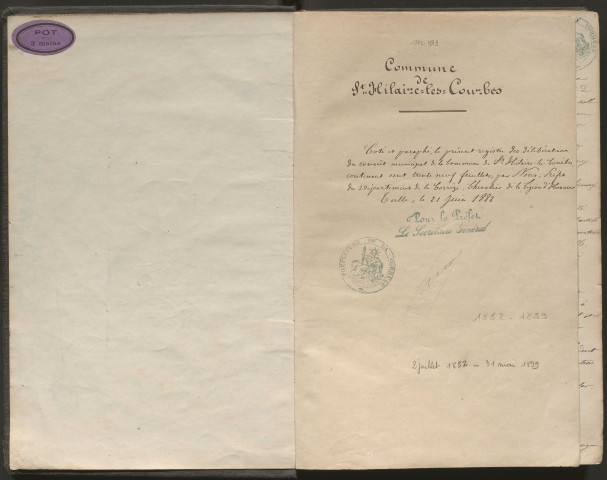 POT
3 mains
Commune
de
St Hilaire=les=Courbes
Coté et paraphé, le présent registre des délibérations
du conseil municipal de la Commune de St Hilaire les Courbes
contenant cent trente neuf feuillets, par Nous, Préfet
du Département de la Corrèze, Chevalier de la Légion d'Honneur
Tulle, le 21 Juin 1882
Pour le Préfet
Le Secrétaire Général
PREFECTURE DE LA CORREZE
1882 - 1899
2 juillet 1882 - 31 mai 1899